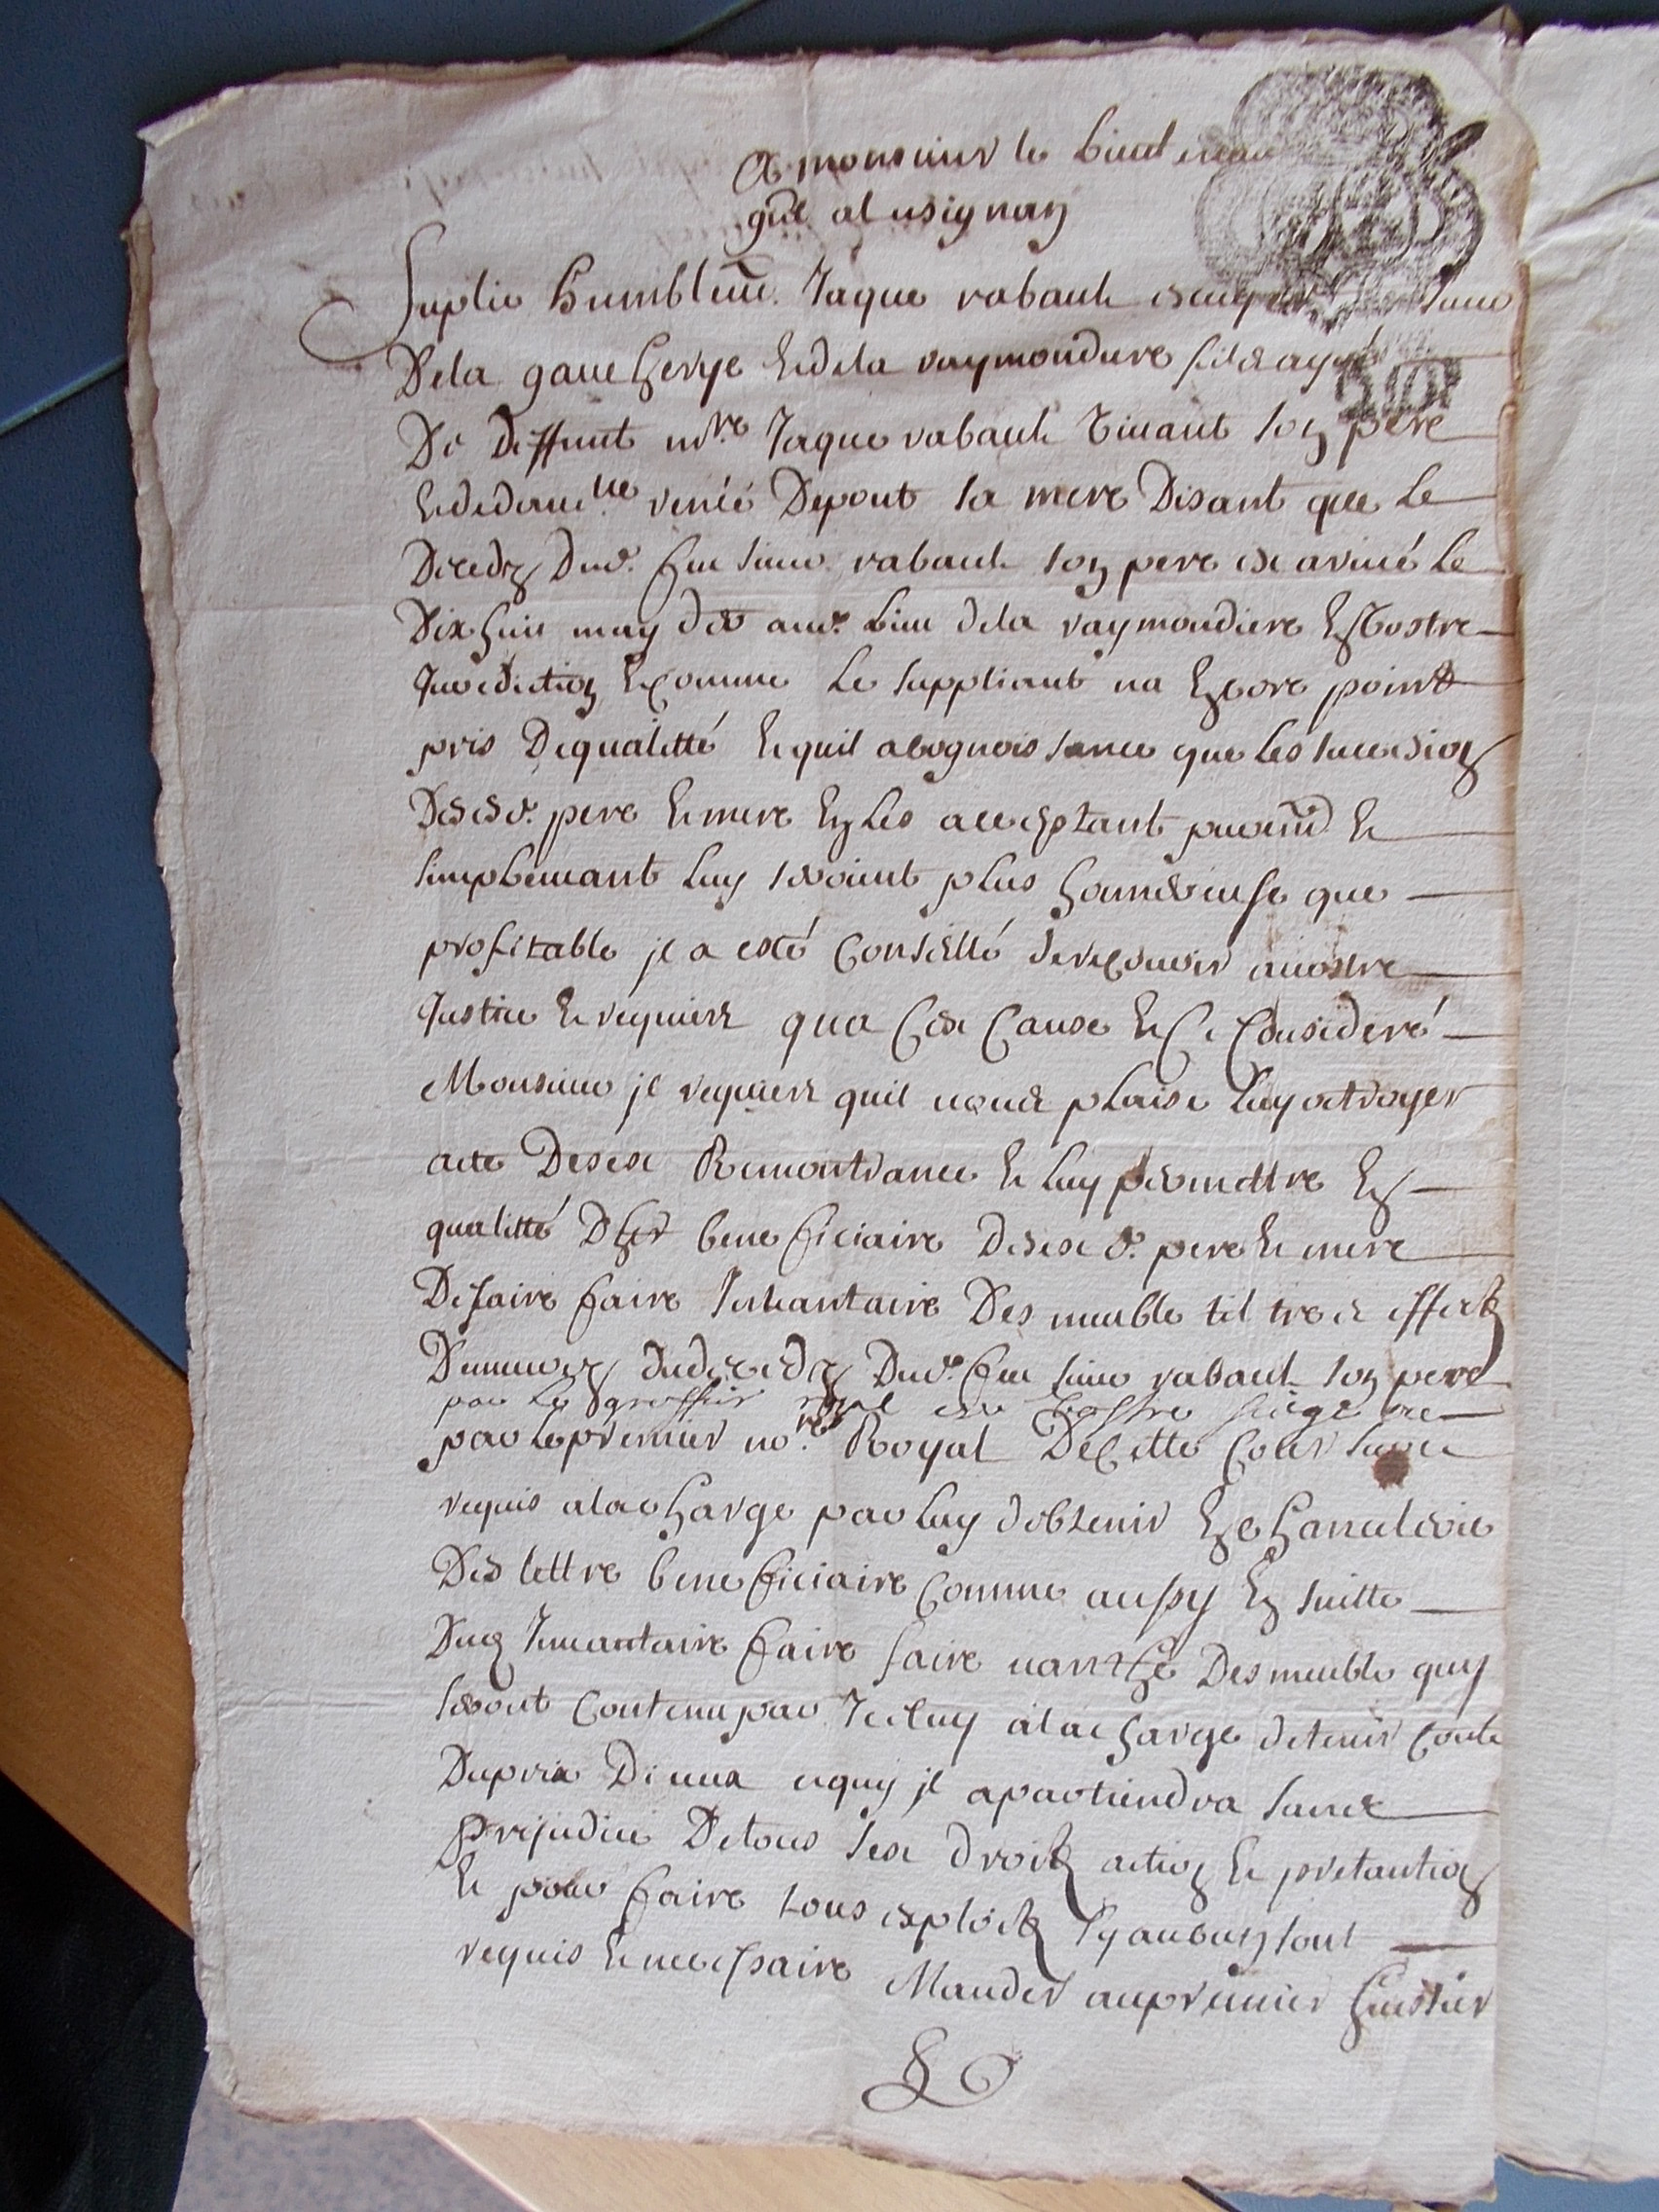 A monsieur le Lieutenan
gnl a Lusignan
Suplie humblemt. Jaque rabault escuyer sieur
De la gaucherye et de la raymondiere fils ayné
De deffunt mre Jaque rabault vivant son pere
et de dame renée Depont sa mere Disant que le
Deceds Dud. feu sieur rabault son pere est arivé le
Dix huit may der aud. lieu de la raymondiere en vostre
Juridiction et comme le suppliant na encore point
pris De qualitté et quil a cognoissance que les sucession
De sesd. pere et mere en les acceptant purement et
simplemant luy seroint plus honnereuse que
profitable jl a esté conseillé de recourir a vostre
Justice et requiert qua ces cause et ce consideré
Monsieur jl requiert quil vous plaise luy octroyer
acte De ses Remontrance et luy permettre en
qualitté Dher beneficiaire De sesd. pere et mere
De faire faire Inventaire Des meuble tiltre et effects
Demeurez du deceds Dud. feu sieur rabault son pere
par le greffier de vostre siege ou
par le premier nore Royal De cette cour sur ce
requis a la charge par luy dobtenir en chancelerie
Des lettre beneficiaire comme aussy en suitte
Dud Inventaire faire faire vanthe Des meuble quy
seront contenu par Iceluy a la charge de tenir conte
Du prix Diceux a quy jl apartiendra sans
Prejudice De tous ses droits action et pretantion
et pour faire tous exploits sy aucun sont
requis et necessaire Mander au premier huissier